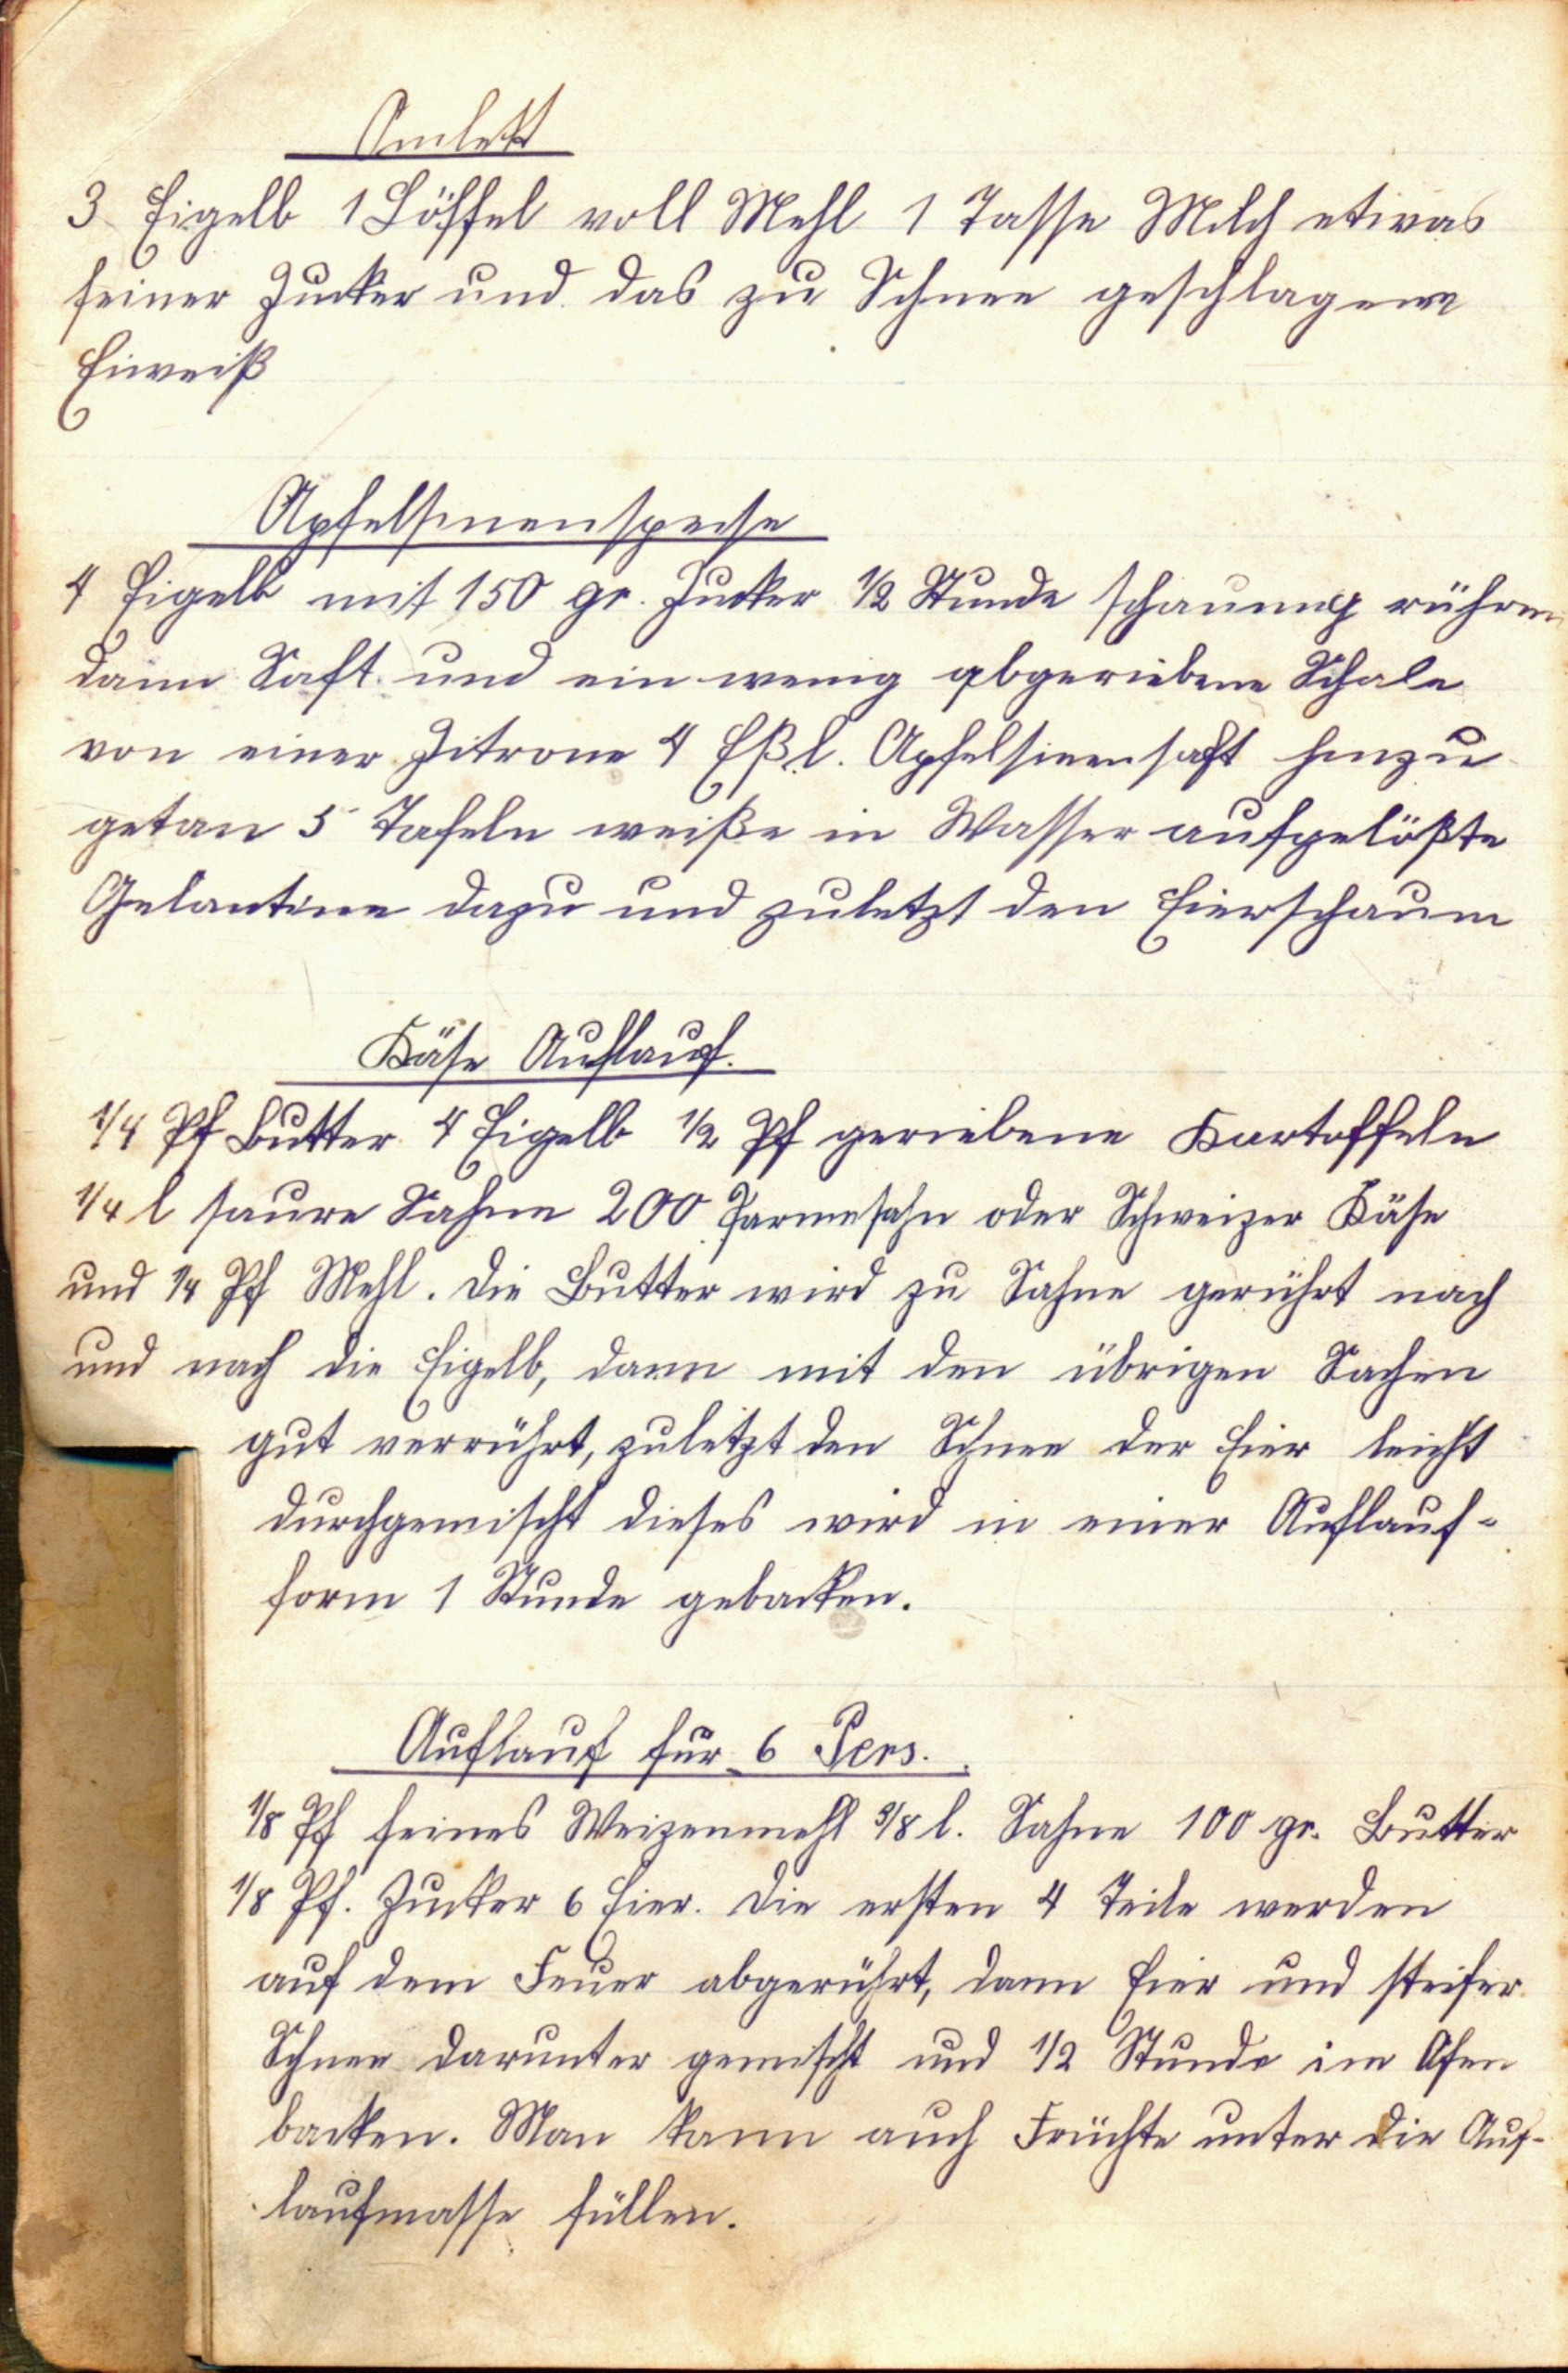 Omlett
3 Eigelb 1 Löffel voll Mehl 1 Tasse Milch etwas
feiner Zucker und das zu Schnee geschlagene
Eiweiß
Apfelsinenspeise
4 Eigelb mit 150 gr. Zucker 1/2 Stunde schaumig rühren
dann Saft und ein wenig abgeriebene Schale
von einer Zitrone 4 Eßl. Apfelsinensaft hinzu
getan 5 Tafeln weiße in Wasser aufgelößte
Gelantine dazu und zuletzt den Eierschaum
Käse Auflauf.
1/4 Pf Butter 4 Eigelb 1/2 Pf geriebene Kartoffeln
1/4 l saure Sahne 200 Parmesahn oder Schweizer Käse
und 1/4 Pf Mehl. Die Butter wird zu Sahne gerührt nach
und nach die Eigelb, dann mit den übrigen Sachen
gut verrührt, zuletzt den Schnee der Eier leicht
durchgemischt dieses wird in einer Auflauf-
form 1 Stunde gebacken.
Auflauf für 6 Pers.
1/8 Pf feines Weizenmehl 3/8 l. Sahne 100 gr. Butter
1/8 Pf. Zucker 6 Eier. Die ersten 4 Teile werden
auf dem Feuer abgerührt, dann Eier und steifer
Schnee darunter gemischt und 1/2 Stunde im Ofen
backen. Man kann auch Früchte unter die Auf-
laufmasse füllen.